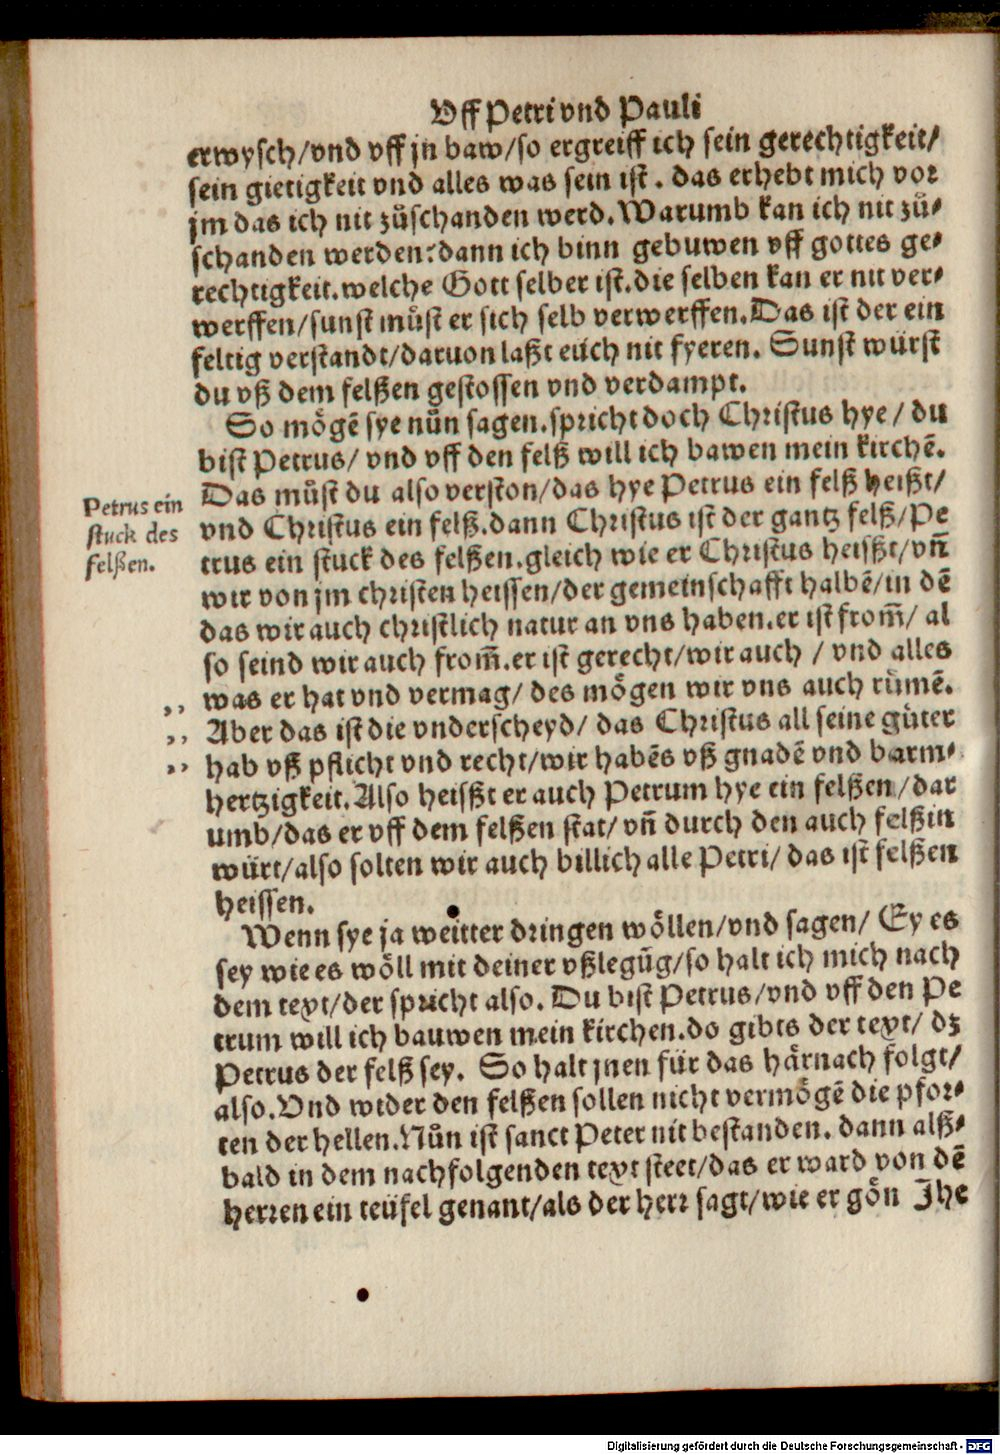 Vff Petri vnd Pauli
erwysch/vnd vff jn baw/so ergreiff ich sein gerechtigkeit/
sein gietigkeit vnd alles was sein ist. das erhebt mich vor
jm das ich nit zůschanden werd. Warumb kan ich nit zů⸗
schanden werden? dann ich binn gebuwen vff gottes ge⸗
rechtigkeit. welche Gott selber ist. die selben kan er nit ver⸗
werffen/sunst můst er sich selb verwerffen. Das ist der ein
feltig verstandt/daruon laßt eüch nit fyeren. Sunst würst
du vß dem felßen gestossen vnd verdampt.
So mögē sye nůn sagen. spricht doch Christus hye/ du
bist Petrus/ vnd vff den felß will ich bawen mein kirchē.
Das můst du also verston/das hye Petrus ein felß heißt/
Petrus ein
stuck des
felßen.
vnd Christus ein felß. dann Christus ist der gantz felß/Pe
trus ein stuck des felßen. gleich wie er Christus heisßt/vn̄
wir von jm christen heissen/der gemeinschafft halbē/in dē
das wir auch christlich natur an vns haben. er ist from̄/ al
so seind wir auch from̄. er ist gerecht/wir auch / vnd alles
was er hat vnd vermag/ des mögen wir vns auch rümē.
,, Aber das ist die vnderscheyd/ das Christus all seine güter
,, hab vß pflicht vnd recht/wir habēs vß gnadē vnd barm⸗
,, hertzigkeit. Also heisßt er auch Petrum hye ein felßen/dar
umb/das er vff dem felßen stat/ vn̄ durch den auch felßin
würt/also solten wir auch billich alle Petri/ das ist felßen
heissen.
Wenn sye ja weitter dringen wöllen/vnd sagen/ Ey es
sey wie es wöll mit deiner vßlegūg/so halt ich mich nach
dem text/der spricht also. Du bist Petrus/vnd vff den Pe
trum will ich bauwen mein kirchen. do gibts der text/ dz
Petrus der felß sey. So halt jnen für das härnach folgt/
also. Vnd wider den felßen sollen nicht vermögē die pfor⸗
ten der hellen. Nůn ist sanct Peter nit bestanden. dann alß⸗
bald in dem nachfolgenden text steet/das er ward von dē
herren ein teüfel genant/als der herr sagt/wie er gön Jhe
Digitalisierung gefördert durch die Deutsche Forschungsgemeinschaft - DFG